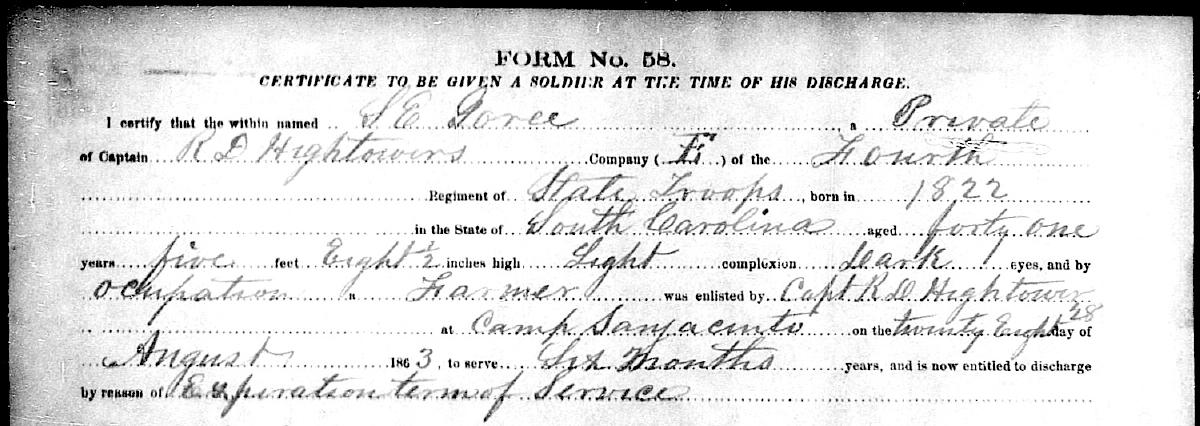 FORM No. 58.
CERTIFICATE TO BE GIVEN A SOLDIER AT THE TIME OF HIS DISCHARGE.
I certify that the within named S E Goree a Private
of Captain R D Hightowers Company ( ) of the Fourth
Regiment of State Troops, born in 1822
in the State of South Carolina aged forty one
years five feet Eight 1/2 inches high Light complexion Dark eyes, and by
ocupation a Farmer was enlisted by Capt R D Hightower
at Camp Sanjacinto on the twenty Eight 28 day of
August 1863, to serve Six Months years, and is now entitled to discharge
by reason of Expiration term of Service